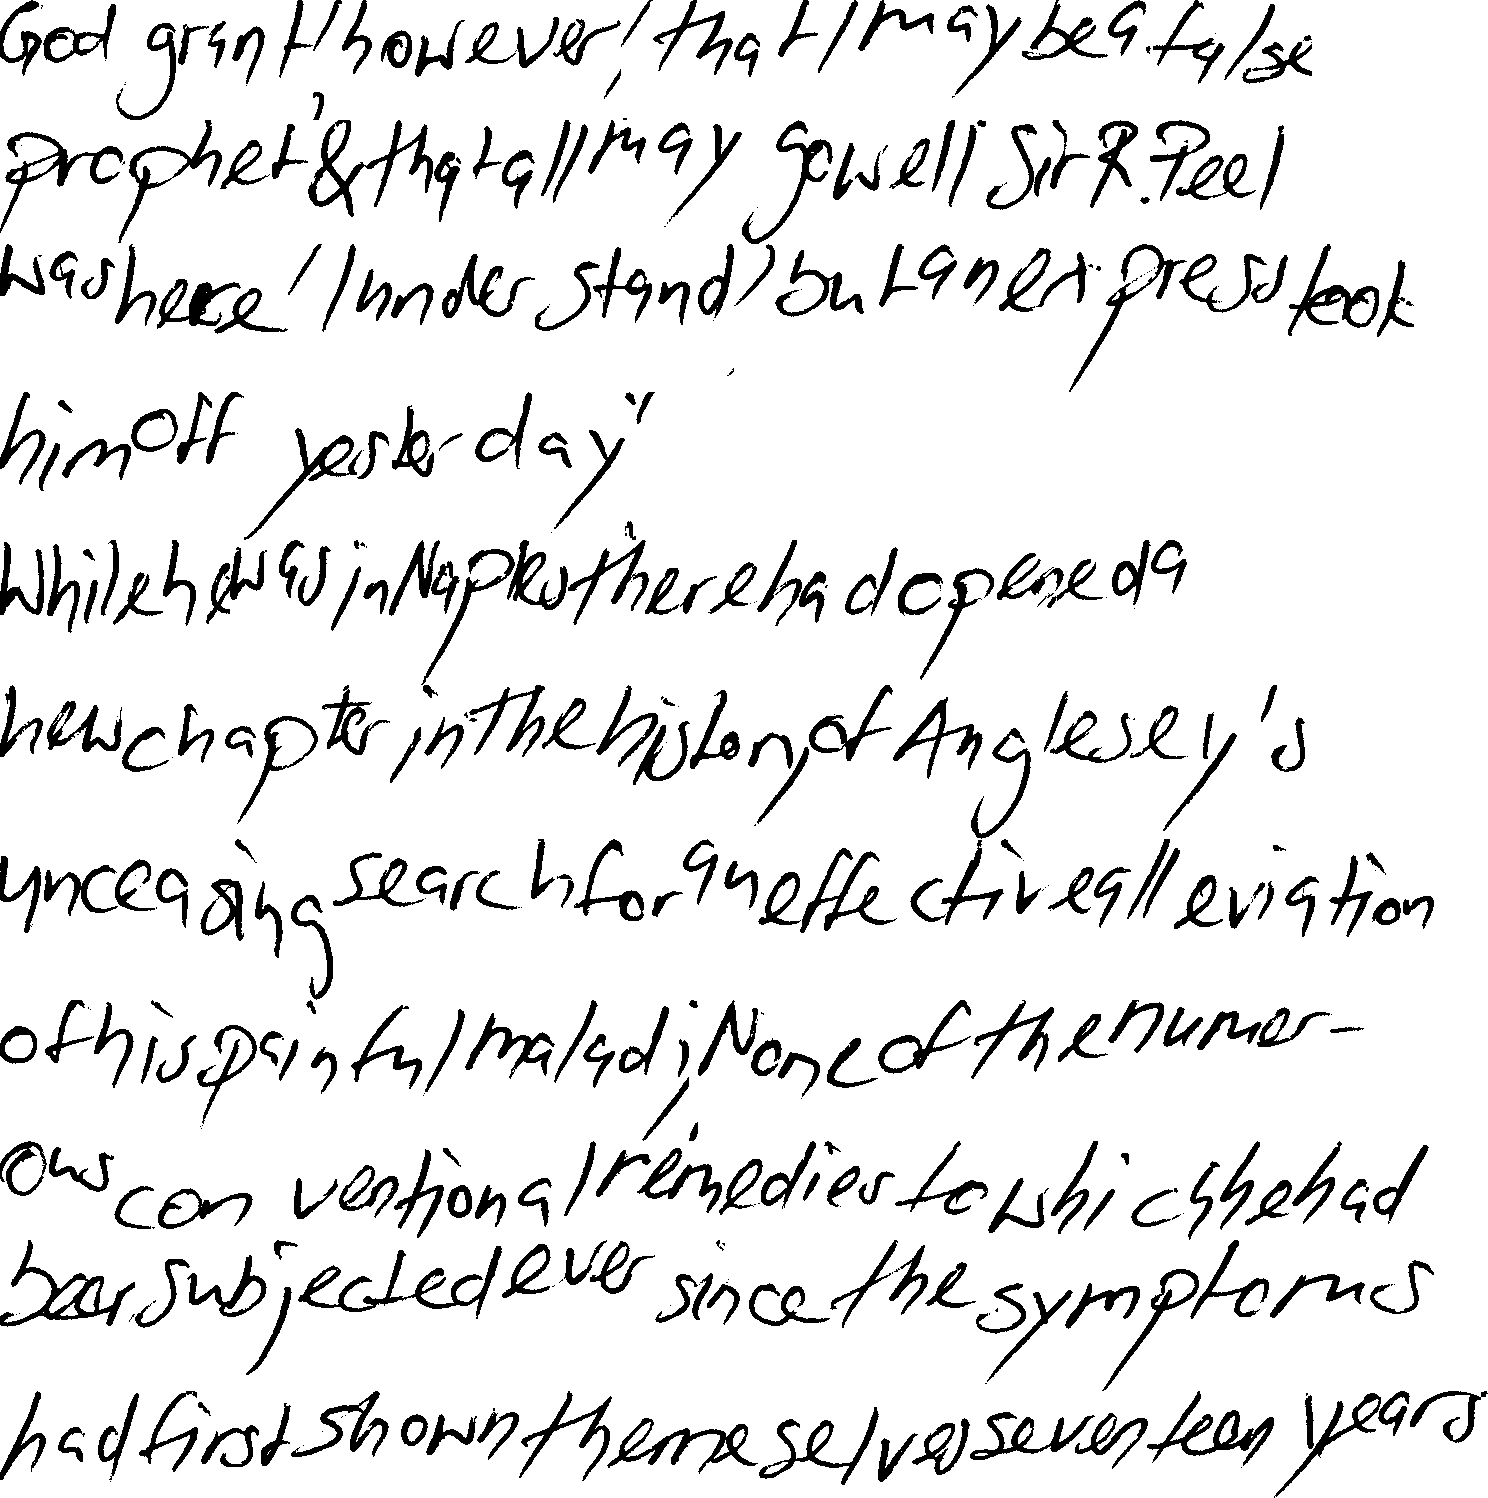 God grant, however, that I may be a false
prophet, & that all may go well Sir R. Peel
was here, I understand, but an express took
him off yesterday."
While he was in Naples there had opened a
new chapter in the history of Anglesey's
unceasing search for an effective alleviation
of his painful malady. None of the numer-
ous conventional remedies to which he had
been subjected ever since the symptoms
had first shown themselves seventeen years